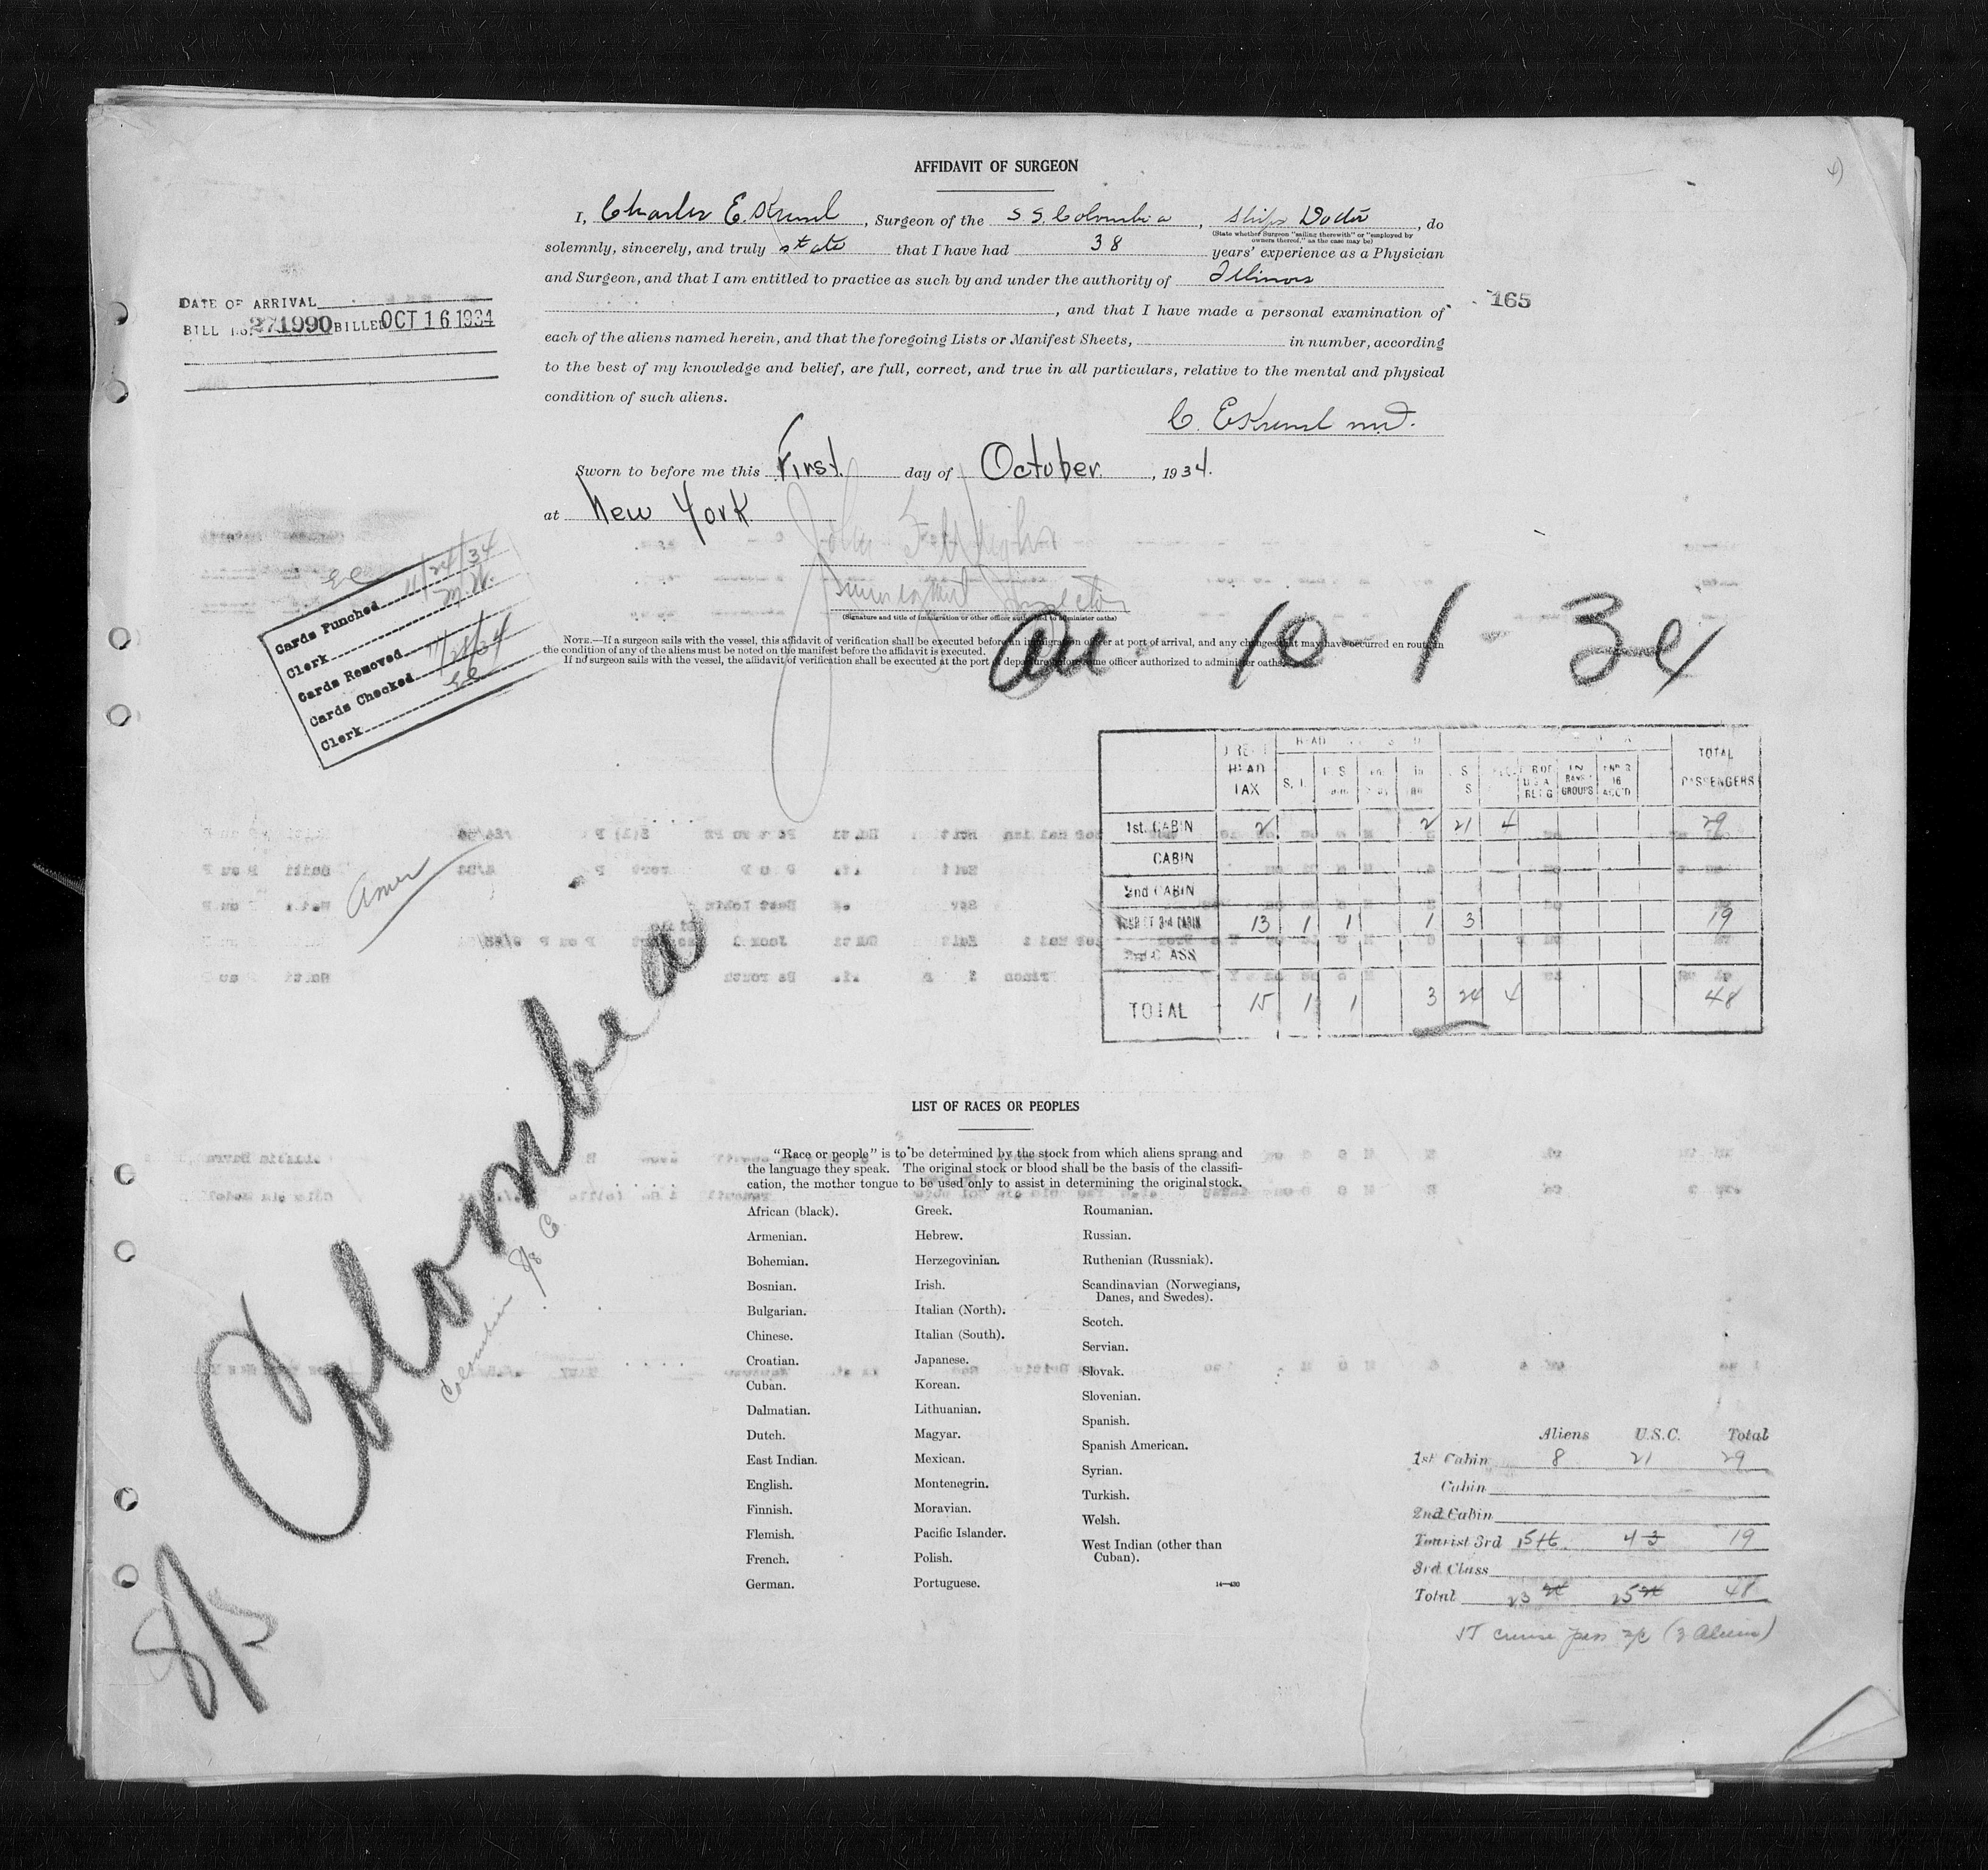 AFFIDAVIT OF SURGEON
I, Charles E. , Surgeon of the S.S. Colombia, Ships Doctor, do
(State whether Surgeon "sailing therewith" or "employed by
owners thereof," as the case may be)
solemnly, sincerely, and truly state that I have had 38 years' experience as a Physician
and Surgeon, and that I am entitled to practice as such by and under the authority of Illinois
, and that I have made a personal examination of
each of the aliens named herein, and that the foregoing Lists or Manifest Sheets, in number, according
to the best of my knowledge and belief, are full, correct, and true in all particulars, relative to the mental and physical
condition of such aliens.
DATE OF ARRIVAL
BILL NO. 271990 BILLED OCT 16 1934
165
C. E. M.D.
Sworn to before me this First day of October, 1934.
at New York
John F.
Immigrant Inspector
(Signature and title of immigration or other officer authorized to administer oaths)
NOTE.—If a surgeon sails with the vessel, this affidavit of verification shall be executed before an immigration officer at port of arrival, and any changes that may have occurred en route in
the condition of any of the aliens must be noted on the manifest before the affidavit is executed.
If no surgeon sails with the vessel, the affidavit of verification shall be executed at the port of departure before some officer authorized to administer oaths.
Cards Punched 11/24/34
Clerk M.W.
Cards Removed
Cards Checked
Clerk
10-1-34
HEAD TAX
TOTAL PASSENGERS
1st. CABIN 2 2 21 4 29
CABIN
2nd CABIN
TOURIST 3rd CABIN 13 1 1 1 3 19
CLASS
TOTAL 15 1 1 3 24 4 48
Amer
Colombia
Colombian S/S Co
8/5
LIST OF RACES OR PEOPLES
"Race or people" is to be determined by the stock from which aliens sprang and
the language they speak. The original stock or blood shall be the basis of the classifi-
cation, the mother tongue to be used only to assist in determining the original stock.
African (black).
Armenian.
Bohemian.
Bosnian.
Bulgarian.
Chinese.
Croatian.
Cuban.
Dalmatian.
Dutch.
East Indian.
English.
Finnish.
Flemish.
French.
German.
Greek.
Hebrew.
Herzegovinian.
Irish.
Italian (North).
Italian (South).
Japanese.
Korean.
Lithuanian.
Magyar.
Mexican.
Montenegrin.
Moravian.
Pacific Islander.
Polish.
Portuguese.
Roumanian.
Russian.
Ruthenian (Russniak).
Scandinavian (Norwegians,
Danes, and Swedes).
Scotch.
Servian.
Slovak.
Slovenian.
Spanish.
Spanish American.
Syrian.
Turkish.
Welsh.
West Indian (other than
Cuban).
14—430
Aliens U.S.C. Total
1st Cabin 8 21 29
Cabin
2nd Cabin
Tourist 3rd 15 4 19
3rd Class
Total 23 25 48
cruise pass